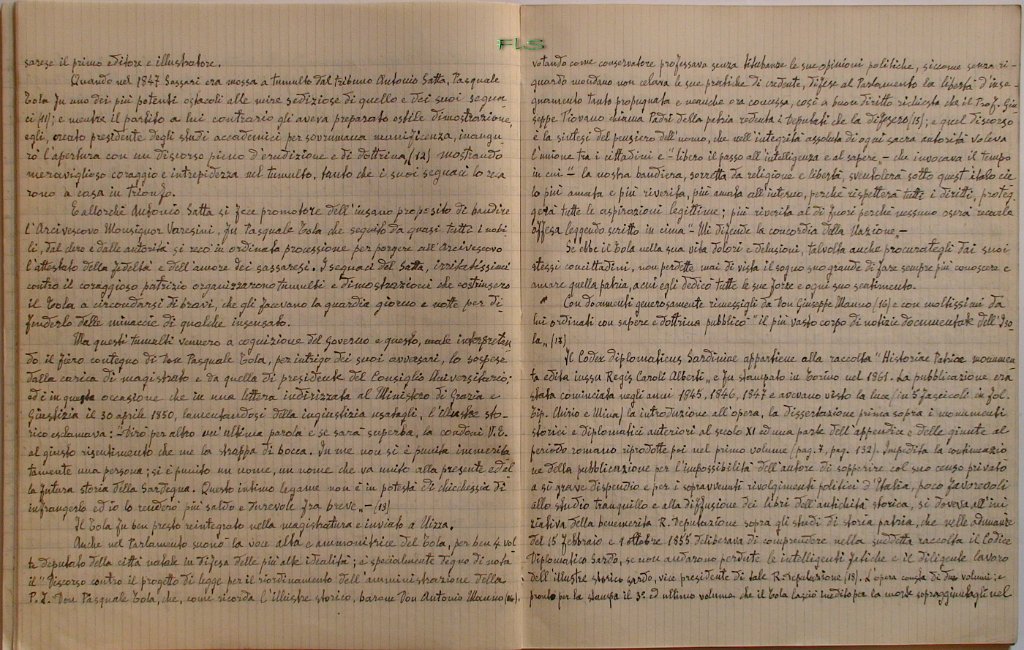 FLS
sarese il primo editore e illustratore.
Quando nel 1847 Sassari era mossa a tumulto dal tribuno Antonio Satta, Pasquale
Tola fu uno dei più potenti ostacoli alle mire sediziose di quello e dei suoi segua
ci (11); e mentre il partito a lui contrario gli aveva preparato ostile dimostrazione,
egli, creato presidente degli studi accademici per sovrumana munificenza, inaugu
rò l'apertura con un discorso pieno d'erudizione e di dottrina (12) mostrando
meraviglioso coraggio e intrepidezza nel tumulto. tanto che i suoi seguaci lo reca
rono a casa in trionfo.
E allorchè Antonio Satta si fece promotore dell'insano proposito di bandire
l'Arcivescovo Monsignor Varesini. fu Pasquale Tola che seguito da quasi tutti i nobi
li, dal clero e dalle autorità si recò in ordinata processione per porgere all'Arcivescovo
l'attestato della fedeltà e dell'amore dei sassaresi. I seguaci del Satta, irritatissimi
contro il coraggioso patrizio organizzarono tumulti e dimostrazioni che costrinsero
il Tola a circondarsi di bravi, che gli facevano la guardia giorno e notte per di
fenderlo dalle minaccie di qualche insensato.
Ma questi tumulti vennero a cognizione del governo e questo, male interpretan
do il fiero contegno di Don Pasquale Tola, per intrigo dei suoi avversari, lo sospese
dalla carica di magistrato e da quella di presidente del Consiglio Universitario;
ed è in questa occasione che in una lettera indirizzata al Ministero di Grazia e
Giustizia il 30 aprile 1850, lamentandosi della ingiustizia usatagli, l'illustre sto-
rico esclamava: "Dirò per altro un'ultima parola e se sarà superba, la condoni V.E.
al giusto risentimento che me la strappa di bocca. In me non si è punita immerita
tamente una persona; si è punito un nome, un nome che va unito alla presente ed al
la futura storia della Sardegna. Questo intimo legame non è in potestà di chicchessia di
infrangerlo ed io lo renderò più saldo e durevole fra breve„ - (13)
Il Tola fu ben presto reintegrato nella magistratura e inviato a Nizza.
Anche nel Parlamento suonò la voce alta e ammonitrice del Tola, per ben 4 vol
te deputato della città natale in difesa delle più alte idealità; è specialmente degno di nota
il "Discorso contro il progetto di legge per il riordinamento dell'amministrazione della
P. I. Don Pasquale Tola, che, come ricorda l'illustre storico, barone Don Antonio Manno (14),
votando come conservatore professava senza titubanze le sue opinioni politiche, siccome senza ri-
guardo mondano non celava le sue pratiche di credente, difese al Parlamento la libertà d'inse-
gnamento tanto propugnata e neanche ora concessa, così a buon diritto richiesta che il Prof. Giu-
seppe Piovano chiama Padri della patria redenta i deputati che la difesero (15); e quel discorso
è la sintesi del pensiero dell'uomo, che nell'integrità assoluta di ogni sacra autorità voleva
l'unione tra i cittadini e "libero il passo all'intelligenza e al sapere„ - che invocava il tempo
in cui "la nostra bandiera, sorretta da religione e libertà, sventolerà sotto quest'italo cie
lo più amata e più riverita, più amata all'interno, perchè rispetterà tutti i diritti, proteg
gerà tutte le aspirazioni legittime; più riverita al di fuori perchè nessuno oserà recarle
offesa leggendo scritto in cima "Mi difende la concordia della Nazione„ -
Se ebbe il Tola nella sua vita dolori e delusioni, talvolta anche procurategli dai suoi
stessi concittadini, non perdette mai di vista il sogno suo grande di fare sempre più conoscere e
amare quella patria, a cui egli dedicò tutte le sue forze e ogni suo sentimento.
Con documenti generosamente rimessigli da Don Giuseppe Manno (16) e con moltissimi da
lui ordinati con sapere e dottrina pubblicò "il più vasto corpo di notizie documentate dell'Iso
la„ (18)
Il Codex diplomaticus Sardiniae appartiene alla raccolta "Historiae Patriae monumen
ta edita iussu Regis Caroli Alberti„ e fu stampato in Torino nel 1861. La pubblicazione era
stata cominciata negli anni 1845, 1846, 1847 e avevano visto la luce (in 5 fascicoli in fol.
Tip. Chirio e Mina) la introduzione all'opera, la dissertazione prima sopra i monumenti
storici e diplomatici anteriori al secolo XI ed una parte dell'appendice e delle giunte al
periodo romano riprodotte poi nel primo volume (pag. 7, pag. 132). Impedita la continuazio
ne della pubblicazione per l'impossibilità dell'autore di sopperire col suo censo privato
a sì grave dispendio e per i sopravvenuti rivolgimenti politici d'Italia, poco favorevoli
allo studio tranquillo e alla diffusione dei libri dell'antichità storica, si doveva all'ini
ziativa della benemerita R. Deputazione sopra gli studi di storia patria, che nelle adunanze
del 15 febbraio e 1 ottobre 1855 deliberava di comprendere nella suddetta raccolta il Codice
Diplomatico Sardo, se non andarono perdute le intelligenti fatiche e il diligente lavoro
dell'illustre storico sardo, vice presidente di tale R. Deputazione (19). L'opera consta di due volumi; e
pronto per la stampa il 3° ed ultimo volume, che il Tola lasciò inedito per la morte sopraggiuntagli nel